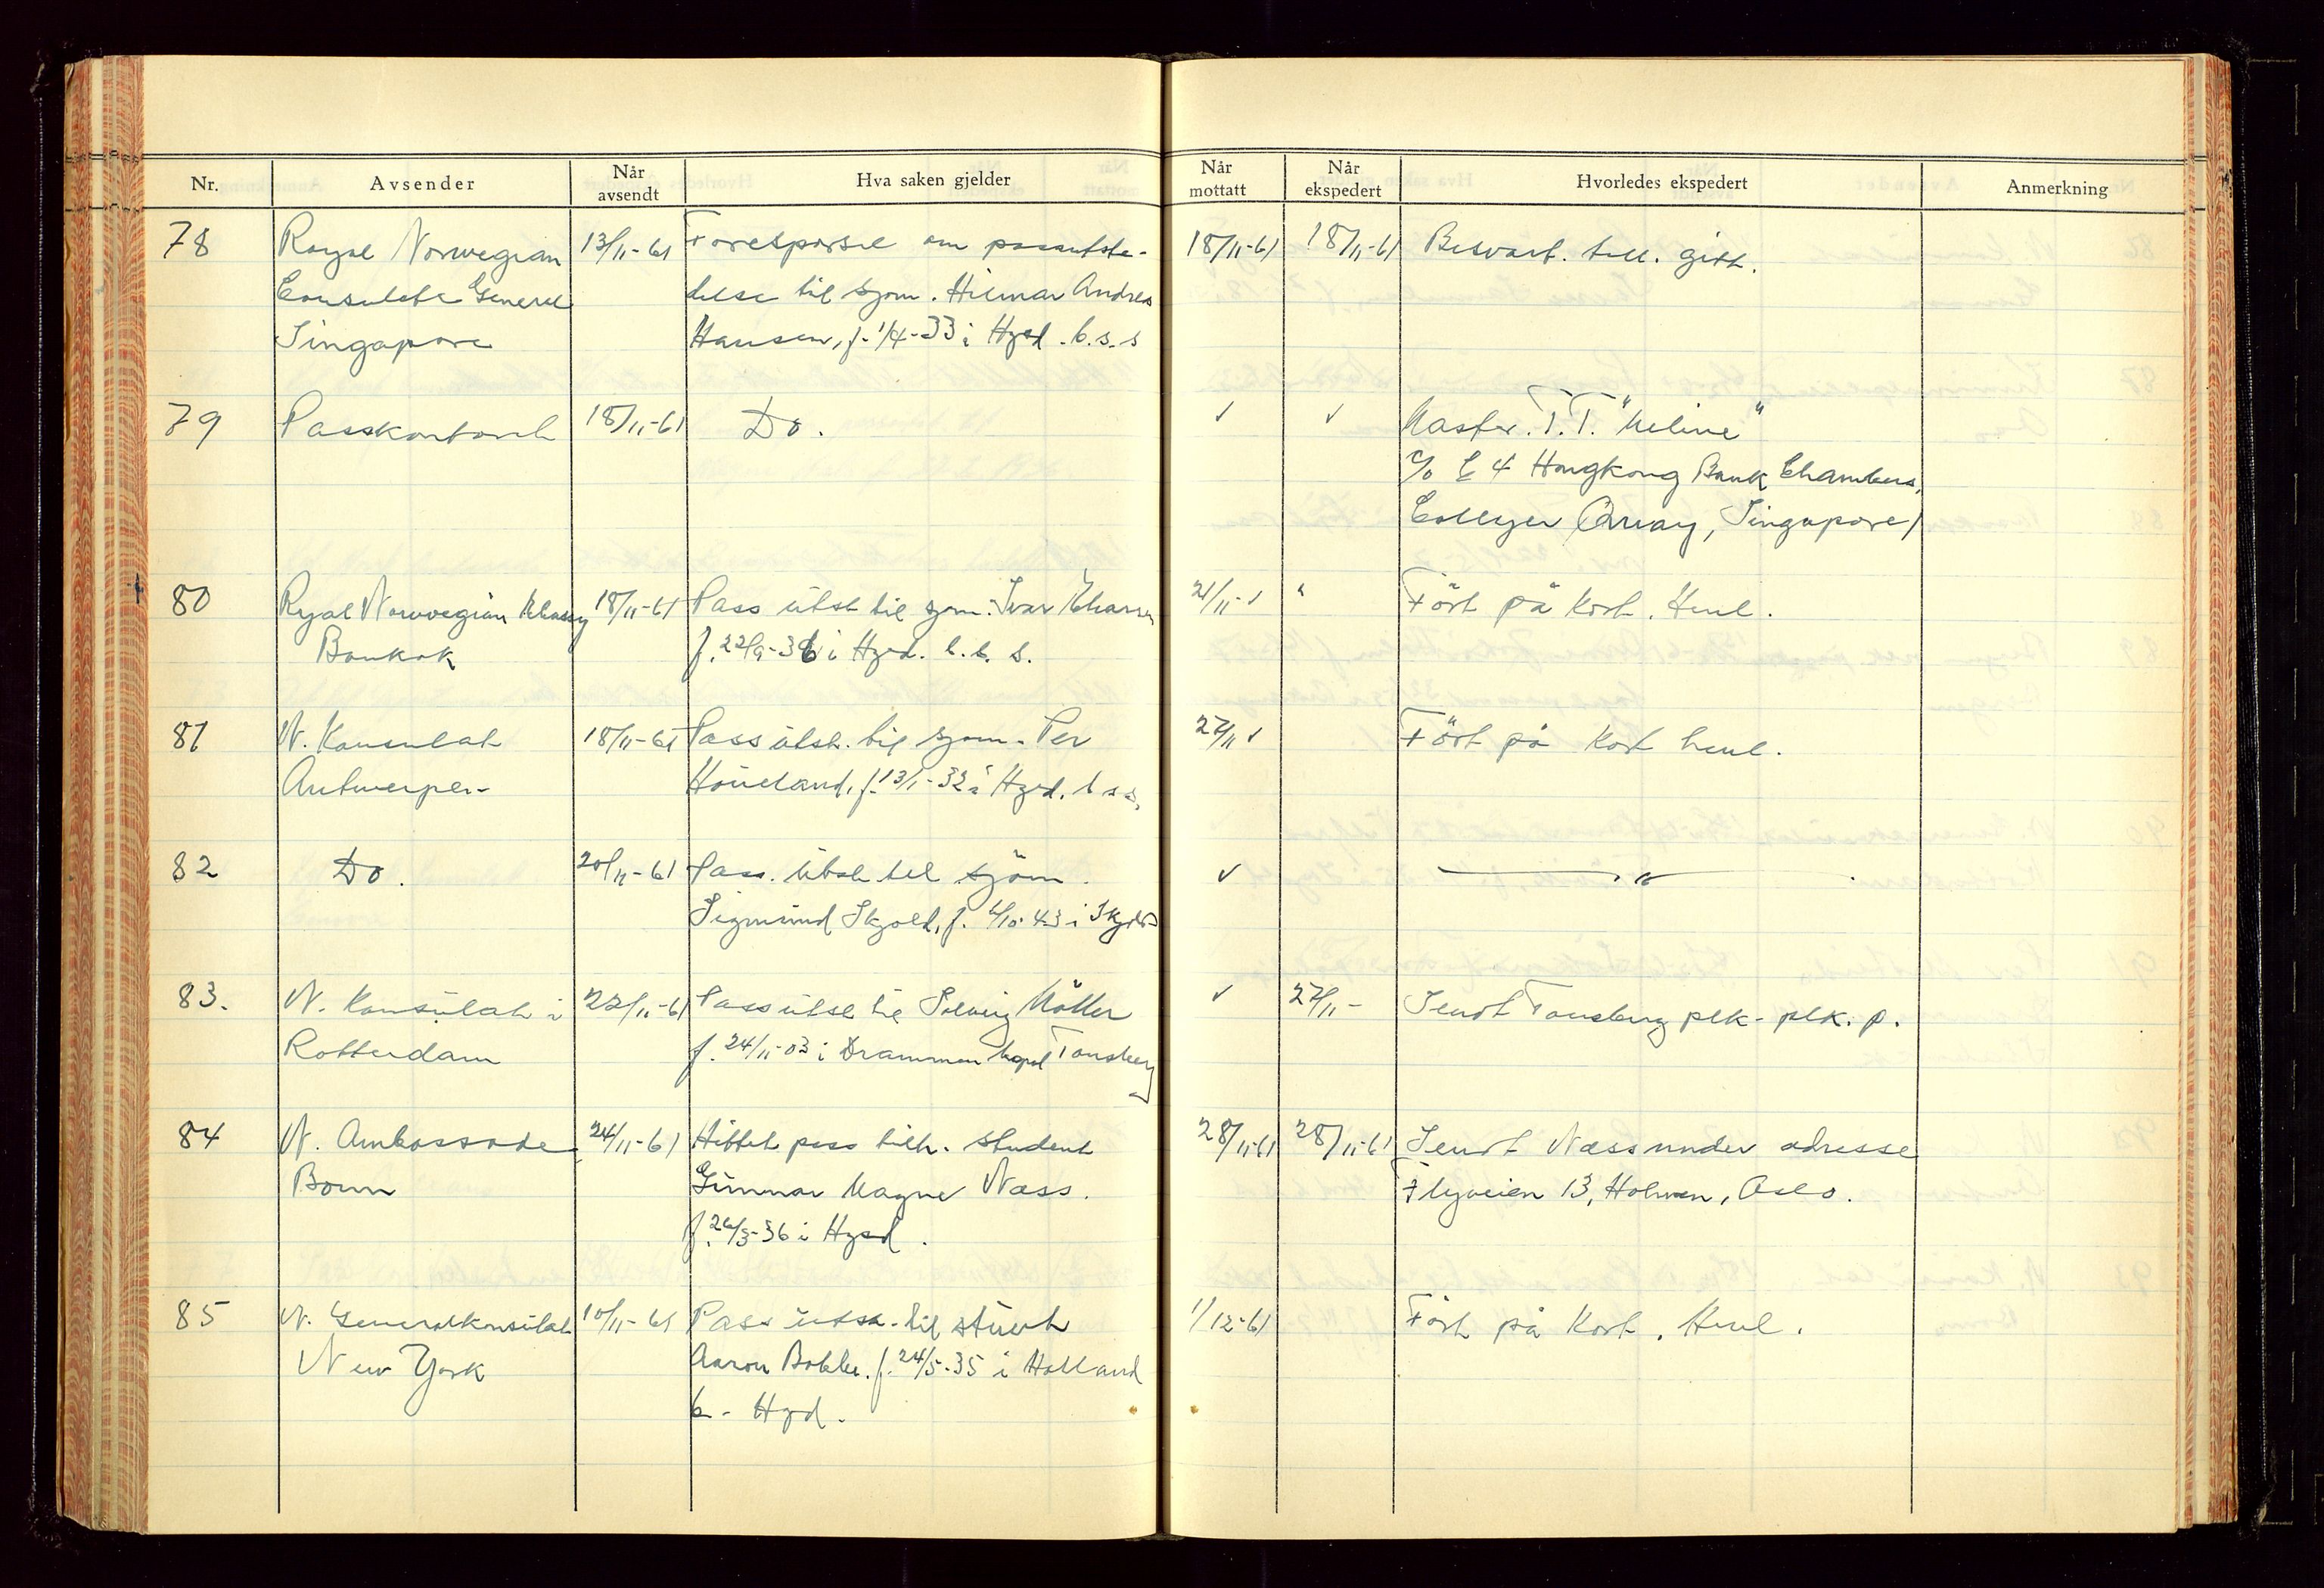 Nr.
Avsender
Når avsendt
Hva saken gjelder
Når mottatt
Når ekspedert
Hvorledes ekspedert
Anmerkning
78 Royal Norwegian 13/11-61 Forespørsel om passutste- 18/11-61 18/11-61 Besvart. till. gitt.
Consulate General delse til sjøm. Hilmar Andres
Singapore Hansen, f. 1/4-33 i Hgsd. b.s.s
79 Passkontoret 18/11-61 Do. ✓ ✓ Master. T.T. "Meline"
c/o C 4 Hongkong Bank Chambers,
Collyer Quay, Singapore/
80 Ryal Norwegian 18/11-61 Pass utst til sjm. Ivar 21/11-✓ " Ført på kort. Henl.
Bankok f. 22/9-36 i Hgsd. b.b.s.
81 N. Konsulat 18/11-61 Pass utst. til sjøm. Per 27/11 ✓ Ført på Kort henl.
Antwerpen Høueland, f. 13/1-32 i Hgsd. b s s.
82 Do. 20/11-61 Pass. utst til sjøm. ✓ — " —
Sigmund Skjold, f. 1/10-43 i
83. N. Konsulat i 22/11-61 Pass utst til Solveig Møller ✓ 27/11- Sendt Tønsberg plk. plk. p.
Rotterdam f. 24/11-03 i Drammen bopel Tønsberg
84 N. Ambassade 24/11-61 Hittet pass tilh. student 28/11-61 28/11-61 Sendt Næss under adresse
Bonn Gunnar Magne Næss. Flyveien 13, Holmen, Oslo.
f. 26/3-36 i Hgsd.
85 N. Generalkonsulat 10/11-61 Pass utst. til stuert 1/12-61 Ført på Kort. Henl.
New York Aaron Bakke. f. 24/5-35 i Holland
b- Hgsd.